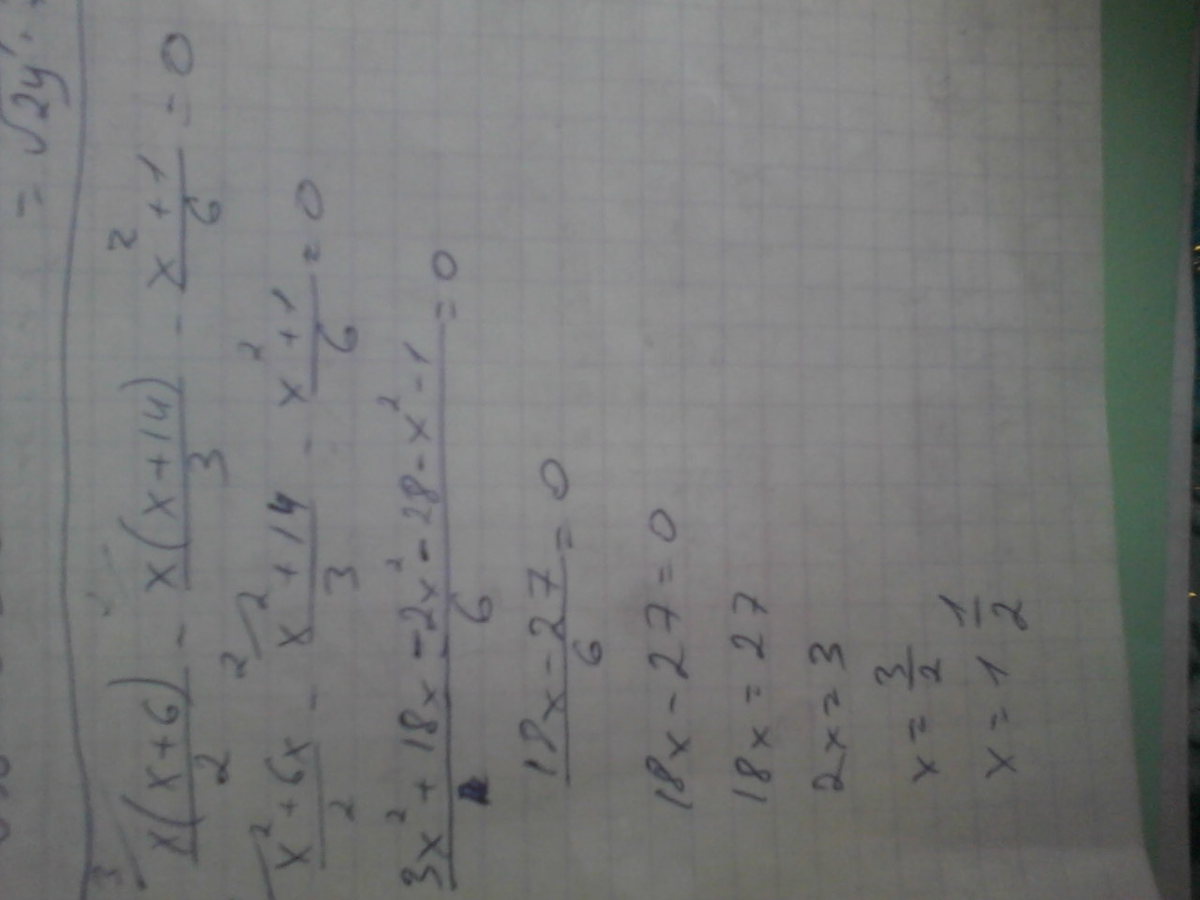 = √2y
x(x+6)/2 - x(x+14)/3 - x²+1/6 = 0
x²+6x/2 - x²+14/3 - x²+1/6 = 0
3x²+18x-2x²-28-x²-1/6 = 0
18x-27/6 = 0
18x-27=0
18x=27
2x=3
x=3/2
x=1 1/2